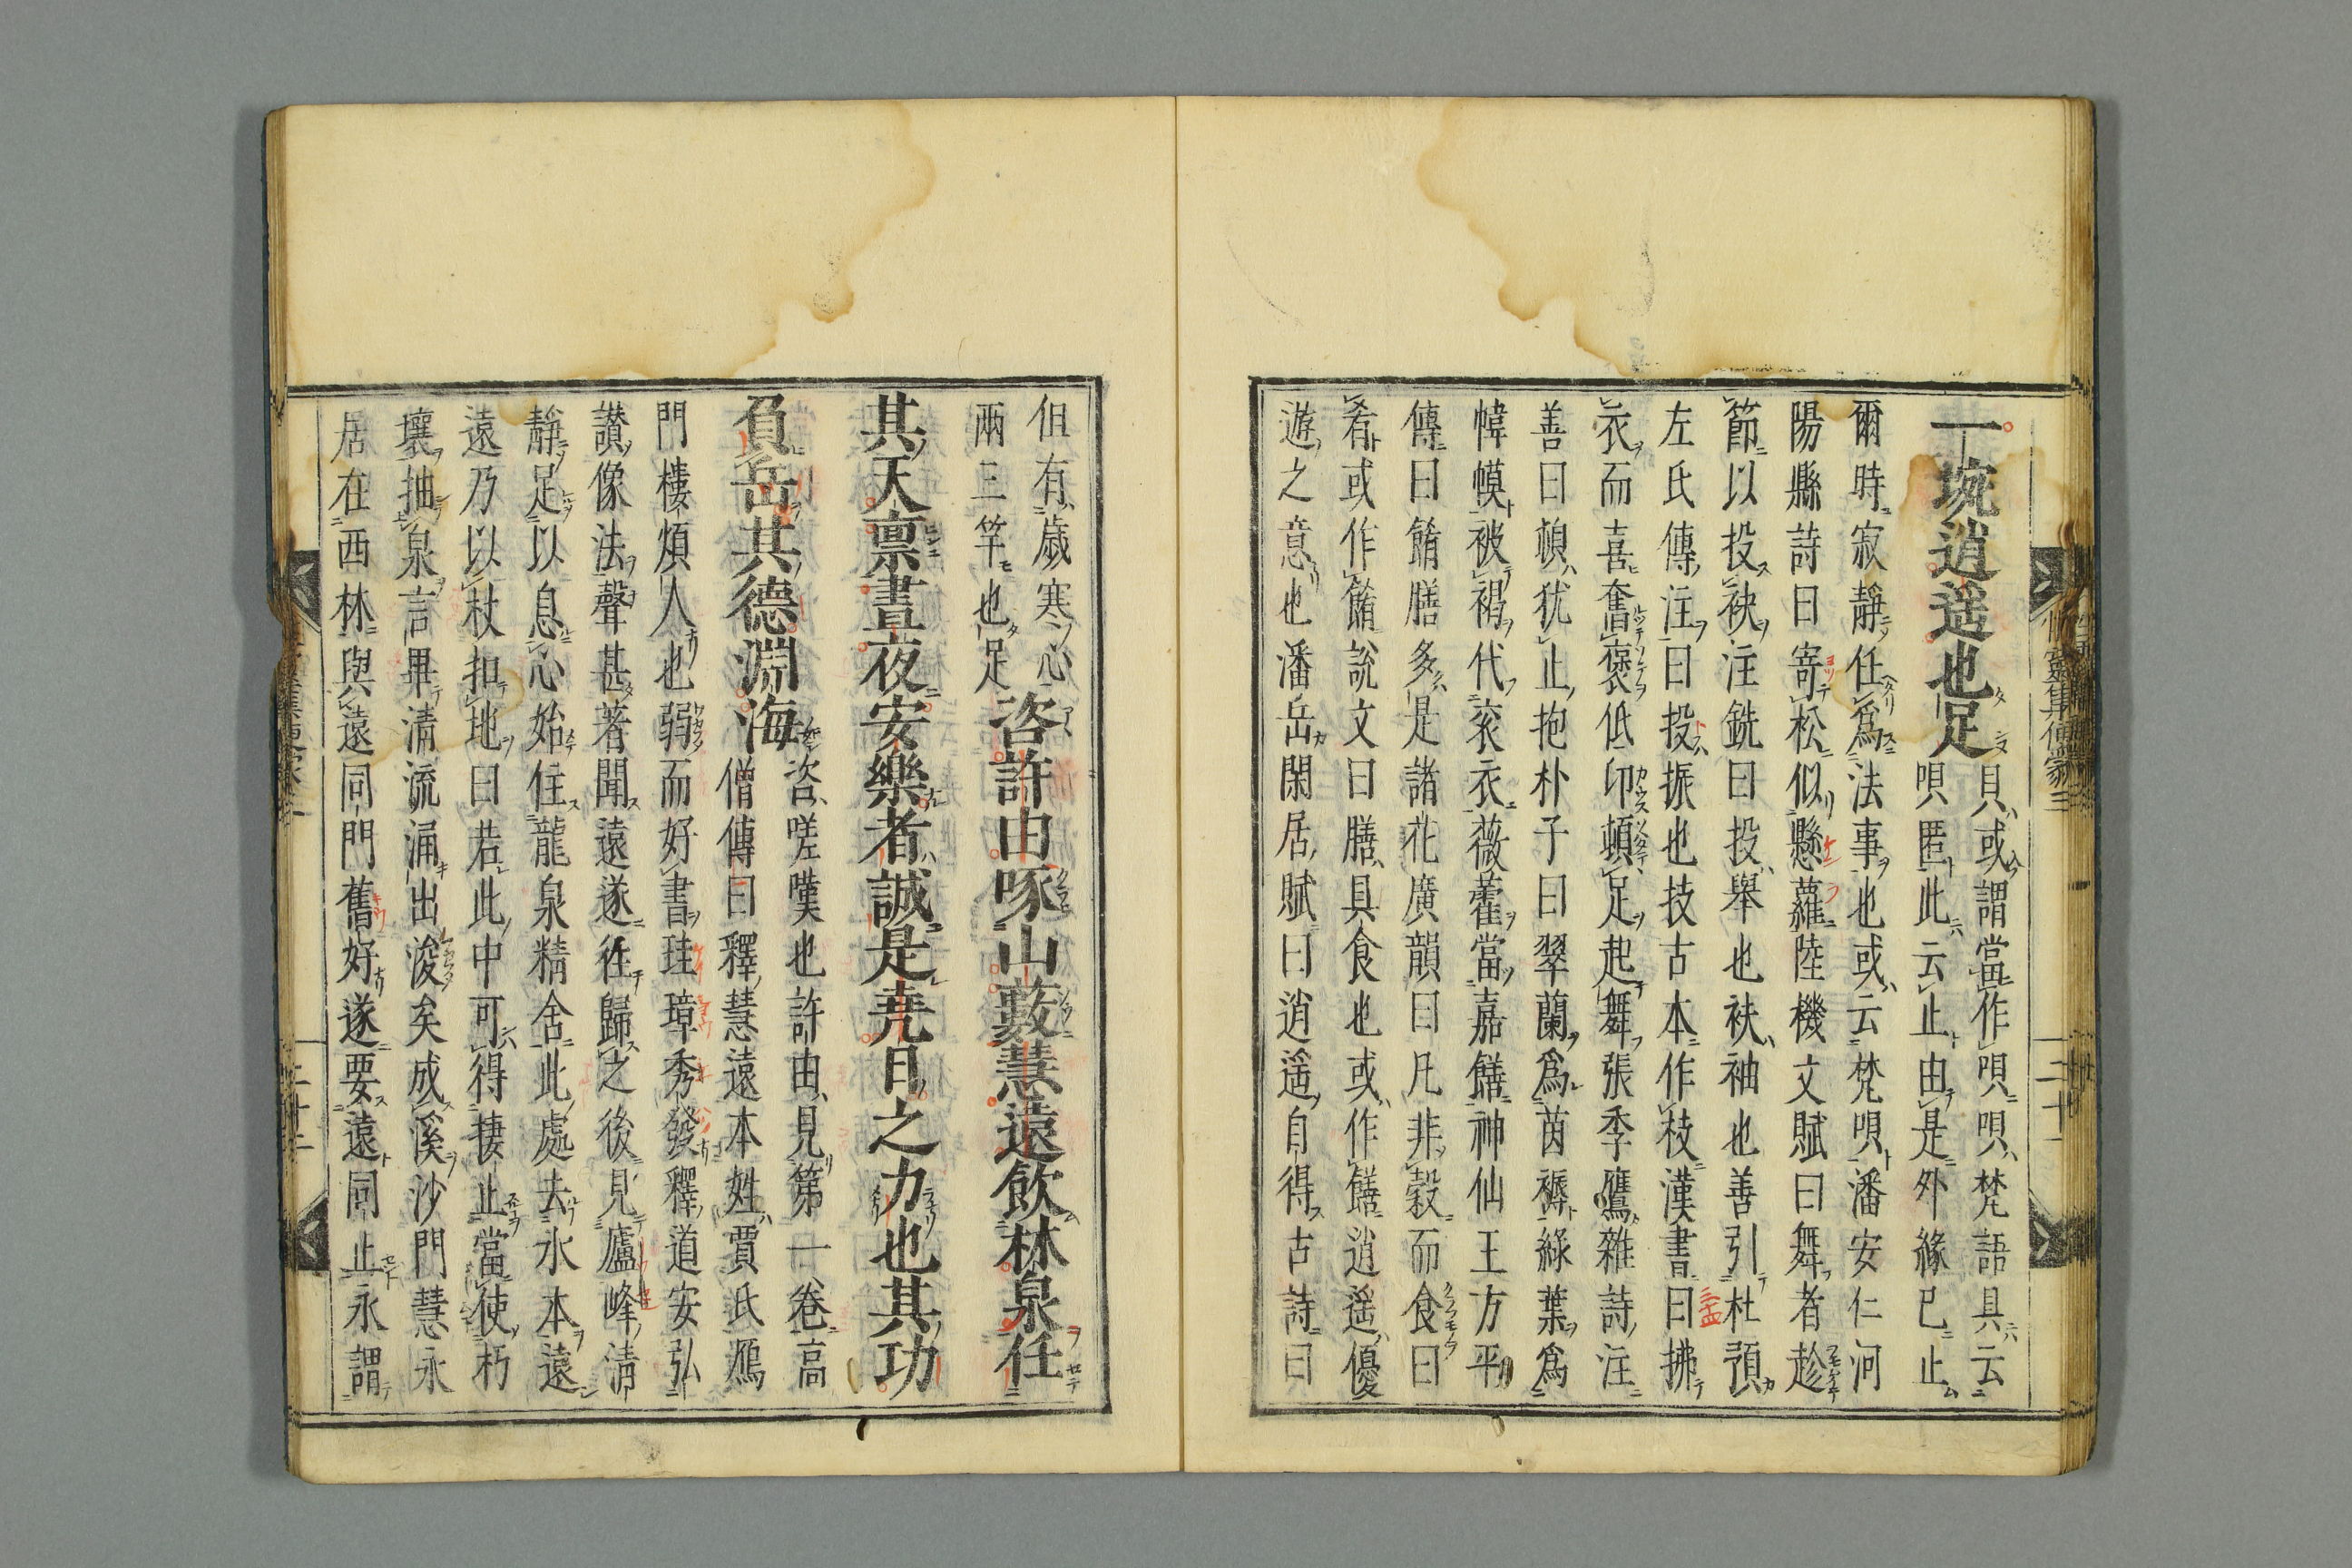 一塊逍遥也足貝或謂當作唄唄梵語具云
唄匿此云止由是外緣已止
爾時寂靜任爲法事也或云梵唄潘安仁河
陽縣詩曰寄松似懸蘿陸機文賦曰舞者趁
節以投袂注銑曰投舉也袂袖也善引杜預
左氏傳注曰投振也技古本作枝漢書曰拂
衣而喜奮褎低卬頓足起舞張季鷹雜詩注
善曰頓猶止抱朴子曰翠蘭爲茵褥綠葉爲
幃幙被褐代衮衣薇藿當嘉饍神仙王方平
傳曰餚膳多是諸花廣韻曰凡非穀而食曰
肴或作餚說文曰膳具食也或作饍逍遥優
遊之意也潘岳閑居賦曰逍遥自得古詩曰
性靈集便蒙三
三十一
但有歲寒心
兩三竿也足
咨許由啄山藪慧遠飲林泉任
其天稟晝夜安樂者誠是堯日之力也其功
負岳其德淵海咨嗟嘆也許由見第一卷高
僧傳曰釋慧遠本姓賈氏鴈
門樓煩人也弱而好書珪璋秀發釋道安弘
讃像法聲甚著聞遠遂往歸之後見廬峰清
靜足以息心始住龍泉精舍此處去水本遠
遠乃以杖扣地曰若此中可得棲止當使朽
壤抽泉言畢清流涌出浚矣成溪沙門慧永
居在西林與遠同門舊好遂要遠同止永謂